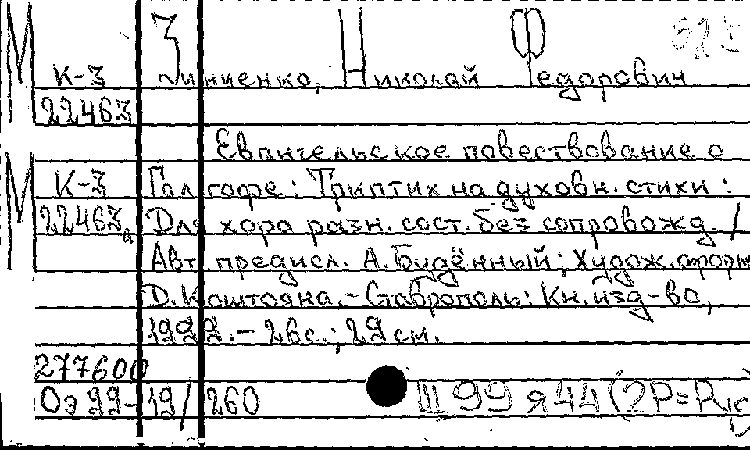 М К-3 Зинченко, Николай Федорович
22463
Евангельское повествование о
М К-3 Голгофе: Триптих на духовн. стихи:
22463а Для хора разн. сост. без сопровожд. /
Авт. предисл. А. Будённый; Худож. оформ
Д. Коштояна. - Ставрополь: Кн. изд-во,
2 с.; 29 см.
277600
Оэ 99-19/260 Ш 99 я 44 (2Р=Р